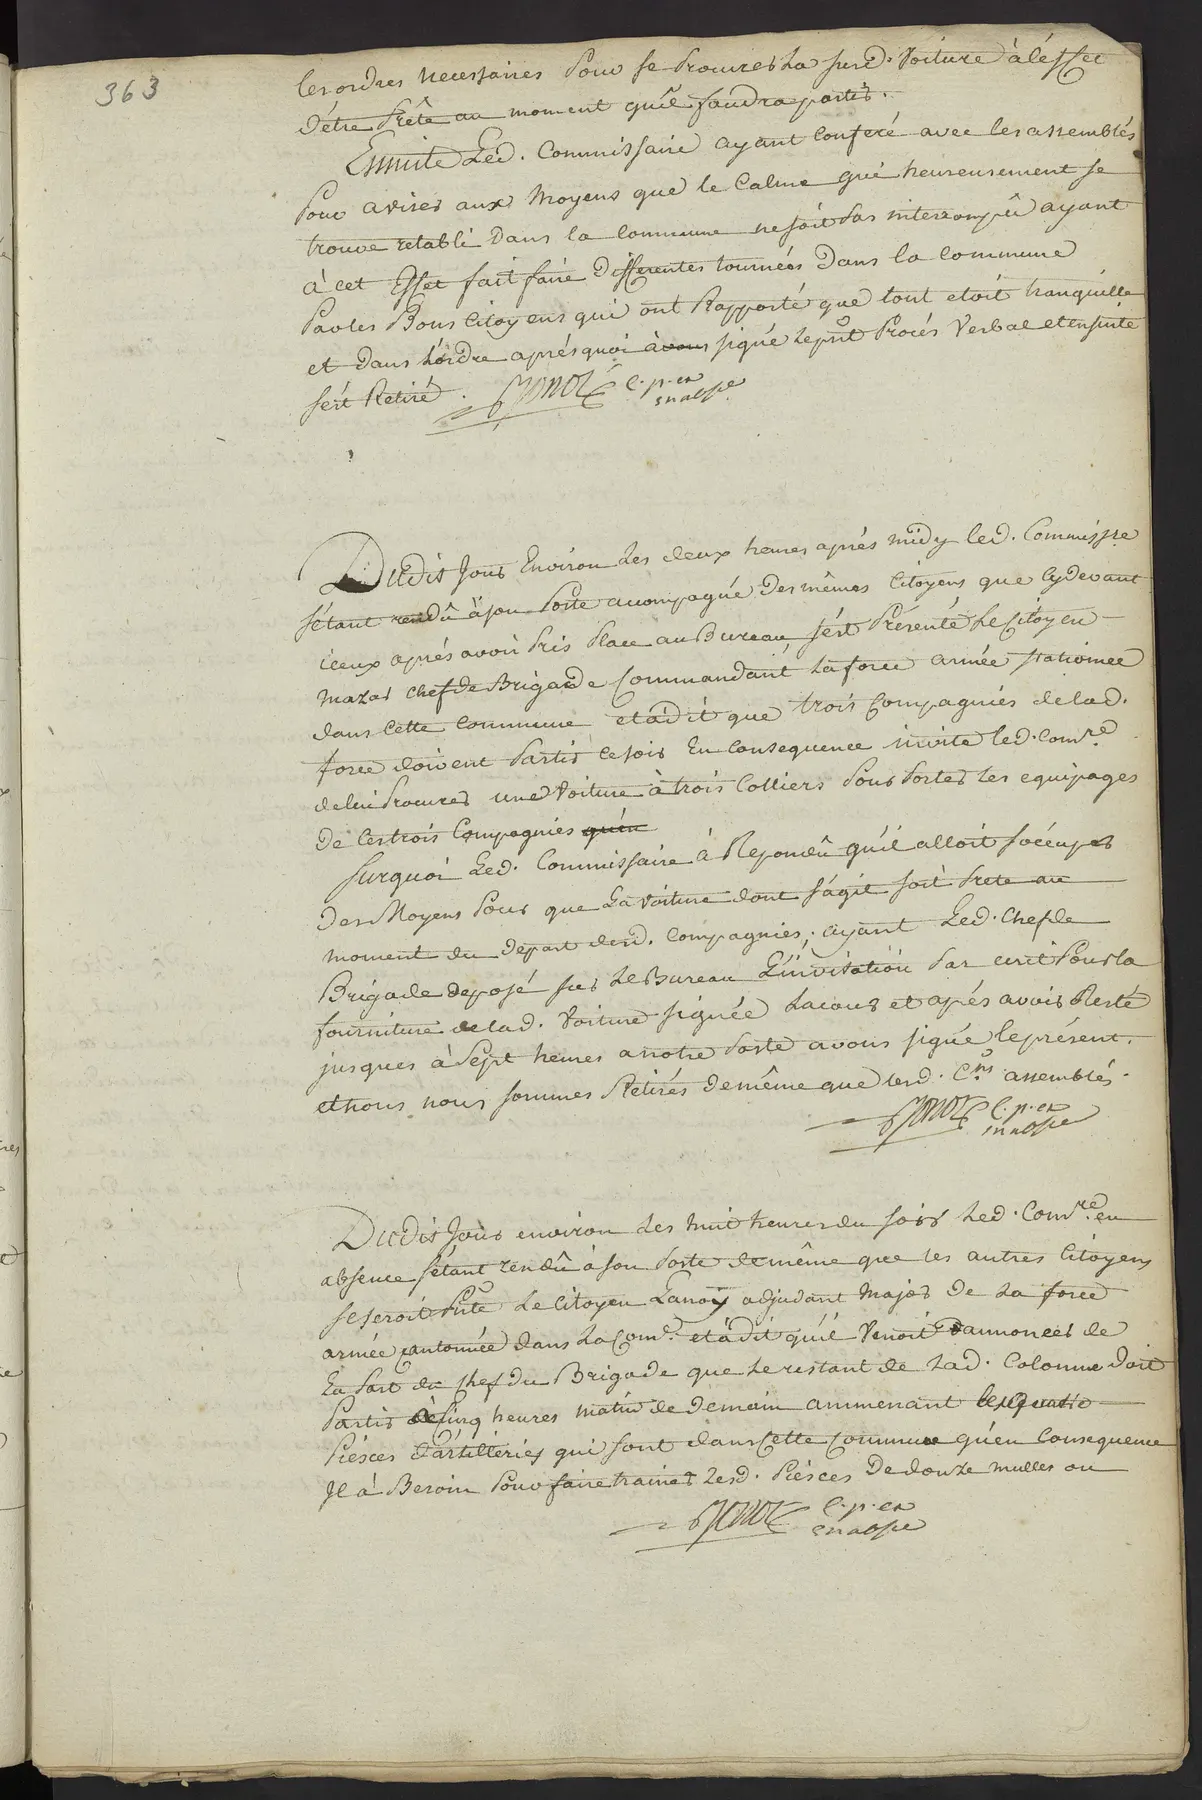 363
les ordres necessaires Pour se Procurer La susd. Voiture à l'effet
d'être Prête au moment qu'il faudra partir.
Ensuite Led. Commissaire ayant conferé avec les assemblés
Pour aviser aux Moyens que le Calme qui heureusement se
trouve retabli Dans la Commune ne soit Pas interrompû ayant
à cet Effet fait faire Differentes tournées Dans la Commune
Par les Bons Citoyens qui ont Rapporté que tout etoit tranquille
et dans L'ordre aprés quoi avons signé Le pnt Procés Verbal et ensuite
s'ést Retiré. C. p. en
en abse
Dudit Jour Environ Les deux heures aprés midy led. Commissre
s'étant rendû à son Poste accompagné Des mêmes Citoyens que Cydevant
iceux aprés avoir Pris Place au Bureau s'ést Présenté Le Citoyen
Mazas Chef de Brigade Commandant La force armée stationnée
dans Cette Commune et à dit que trois Compagnies de lad.
force doivent Partir Ce soir En Consequence invite led. Comre
de lui Procurer une Voiture à trois Colliers Pour Porter Les equipages
De Ces trois Compagnies qu'en
Surquoi Led. Commissaire à Repondû qu'il alloit s'occuper
Des Moyens Pour que La Voiture dont s'agit soit Prete au
moment du Depart desd. Compagnies, ayant Led. Chef de
Brigade deposé sur Le Bureau L'invitation Par ecrit Pour la
fourniture de lad. Voiture signée Lacour et aprés avoir Resté
jusques à Sept heures a notre Poste avons signé le présent.
et nous nous sommes Retirés De même que lesd. Cns assemblés.
C. p. en
en abse
Dudit Jour environ Les huit heures du soir Led. Comre en
absence s'étant rendû à son Poste de même que les autres Citoyens
se seroit Pnté Le Citoyen Lanoÿ adjudant Major De La force
armée Cantonnée dans La Come et à dit qu'il Venoit D'annoncer de
La Part du Chef du Brigade que Le restant de Lad. Colonne Doit
Partir à Cinq heures Matin de Demain ammenant les quatre
Piésces D'artilleries qui sont dans Cette Commune qu'en Consequence
Il à Besoin Pour faire trainer Lesd. Piésces De douze mulles ou
C. p. en
en abse